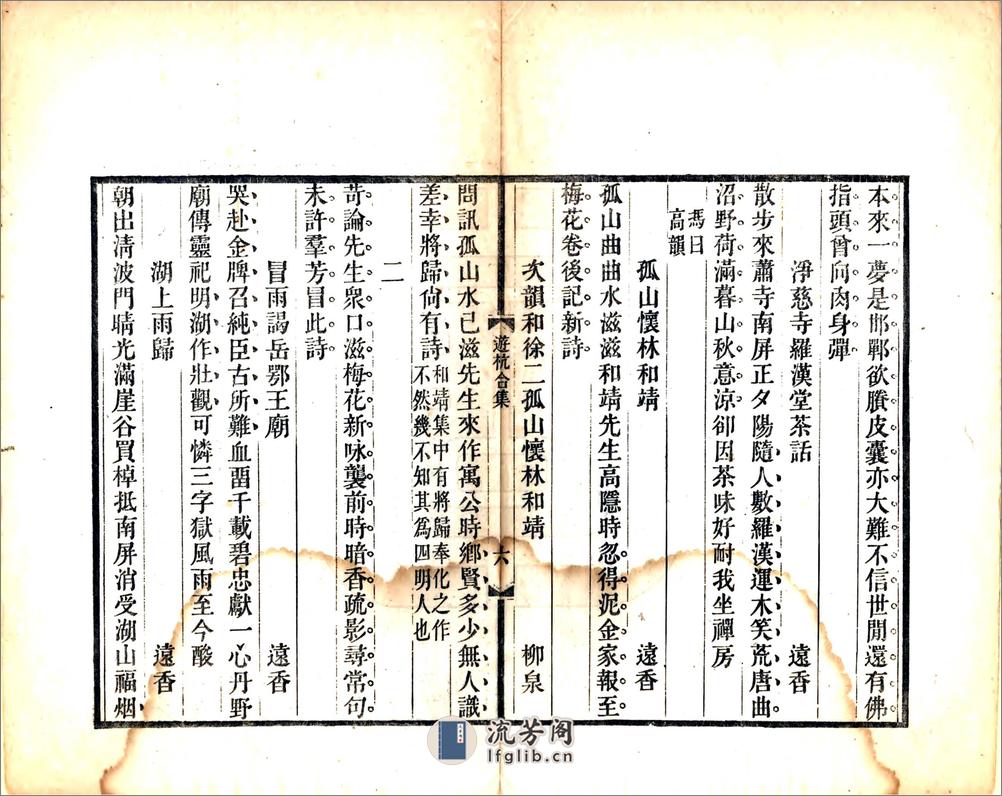 本來一夢是邯鄲欲賸皮囊亦大難不信世閒還有佛
指頭曾向肉身彈
淨慈寺羅漢堂茶話 遠香
散步來蕭寺南屏正夕陽隨人數羅漢運木笑荒唐曲
沼野荷滿暮山秋意涼卻因茶味好耐我坐禪房
馮曰
高韻
孤山懷林和靖 遠香
孤山曲曲水滋滋和靖先生高隱時忽得泥金家報至
梅花卷後記新詩
次韻和徐二孤山懷林和靖 柳泉
遊杭合集 六
問訊孤山水已滋先生來作寓公時鄉賢多少無人識
差幸將歸尙有詩和靖集中有將歸奉化之作
不然幾不知其爲四明人也
二
苛論先生衆口滋梅花新咏襲前時暗香疏影尋常句
未許羣芳冒此詩
冒雨謁岳鄂王廟 遠香
哭赴金牌召純臣古所難血畱千載碧忠獻一心丹野
廟傳靈祀明湖作壯觀可憐三字獄風雨至今酸
湖上雨歸 遠香
朝出淸波門晴光滿崖谷買棹抵南屏消受湖山福烟
流芳阁
lfglib.cn